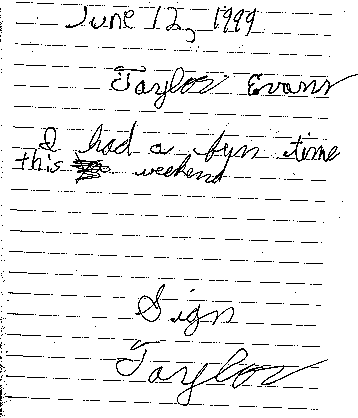 June 12, 1999
Taylor Evans
I had a fun time
this weekend
Sign
Taylor